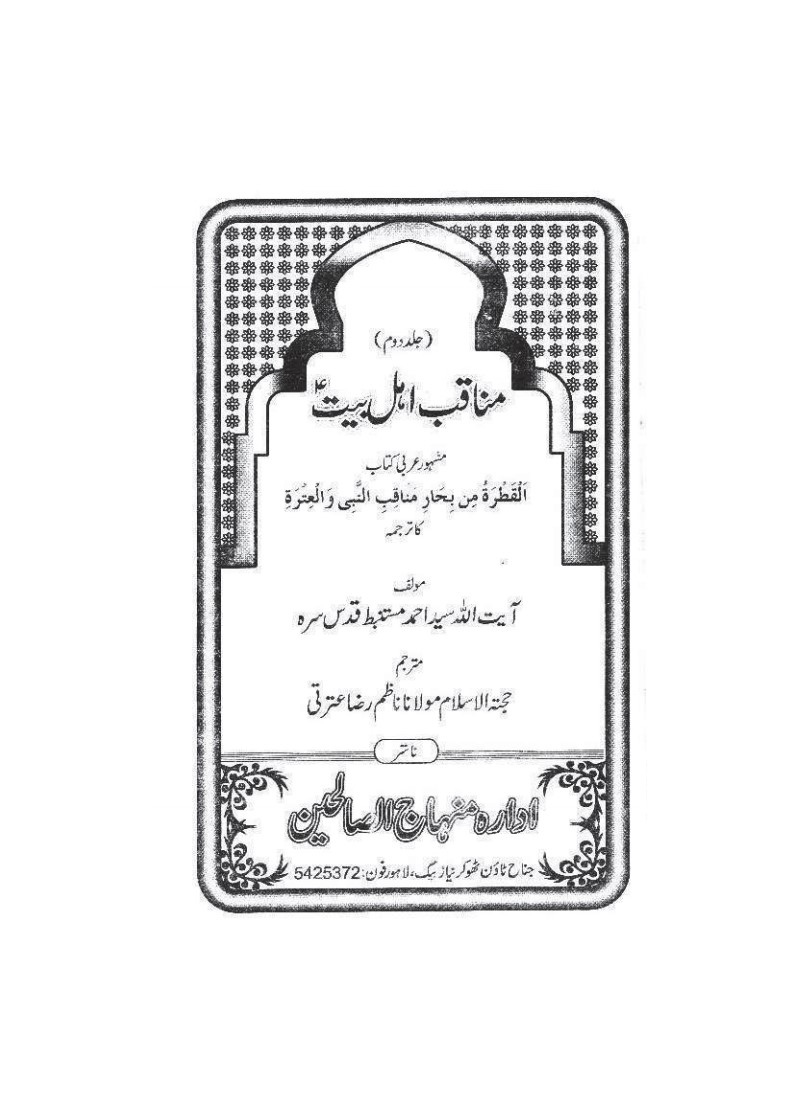 (جلد دوم)
مناقب اہل بیتؑ
مشہور عربی کتاب
اَلْقَطْرَةُ مِن بِحَارِ مَنَاقِبِ النَّبِی وَالْعِتْرَةِ
کا ترجمہ
مولف
آیت اللہ سید احمد مستنبط قدس سرہ
مترجم
حجتہ الاسلام مولانا ناظم رضا عترتی
ناشر
ادارہ منہاج الصالحین
جناح ٹاؤن ٹھوکر نیاز بیگ، لاہور فون: 5425372